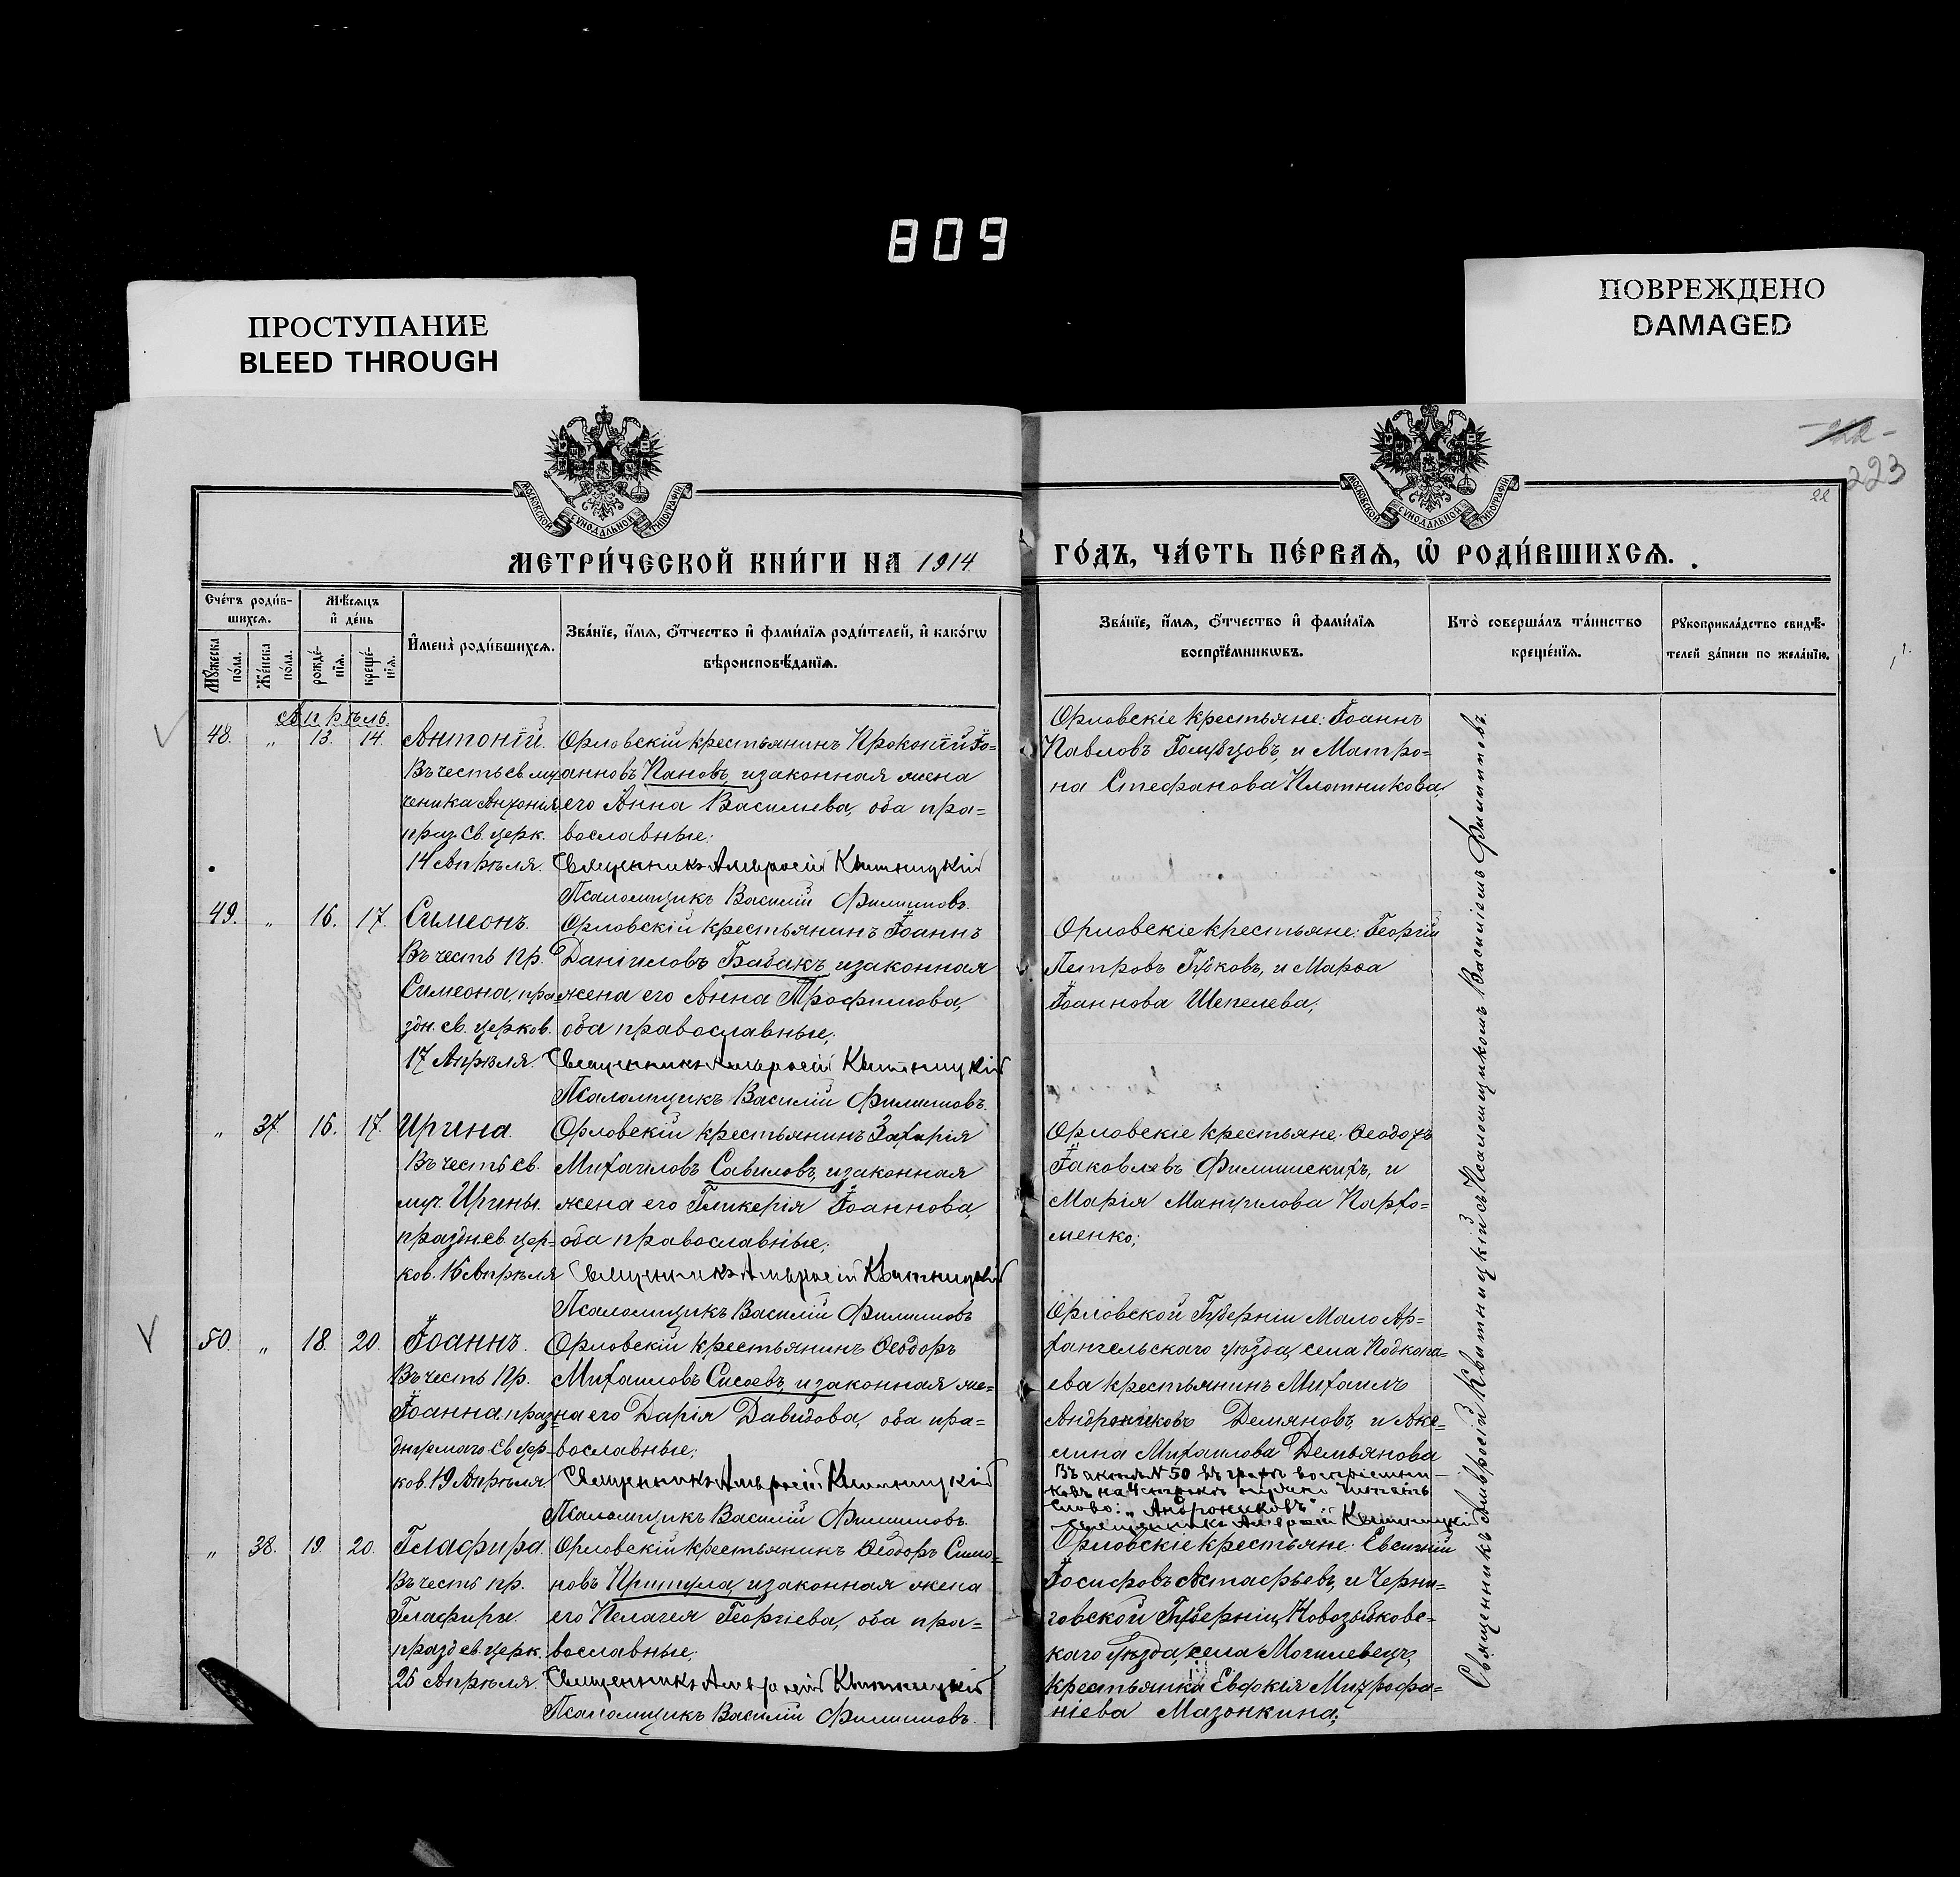 809
ПРОСТУПАНИЕ
BLEED THROUGH
ПОВРЕЖДЕНО
DAMAGED
223
22
МОСКОВСКОЙ СѴНОДАЛЬНОЙ ТИПОГРАФІИ
МОСКОВСКОЙ СѴНОДАЛЬНОЙ ТИПОГРАФІИ
МЕТРИ́ЧЕСКОЙ КНИ́ГИ НА 1914 ГО́ДЪ, ЧА́СТЬ ПЕ́РВАѦ, Ѡ҆ РОДИ́ВШИХСѦ.
Сче́тъ роди́в-
шихсѧ.
Мꙋ́жеска по́ла.
Же́нска по́ла.
Мѣ́сѧцъ
и҆ де́нь
рожде́-
нїѧ.
креще́-
нїѧ.
И҆мена̀ роди́вшихсѧ.
Зва́нїе, и҆́мѧ, ѻ҆́тчество и҆ фами́лїѧ роди́телей, и҆ како́гѡ
вѣроисповѣ́данїѧ.
Зва́нїе, и҆́мѧ, ѻ҆́тчество и҆ фами́лїѧ
воспрїе́мникѡвъ.
Кто̀ соверша́лъ та́инство
креще́нїѧ.
Рꙋкоприкла́дство свидѣ́-
телей за́писи по жела́нїю.
Апрѣль.
48. „ 13. 14. Антоній.
Въ честь св. му
ченика Антонія
праз. св. церк.
14 Апрѣля.
Орловскій крестьянинъ Прокопій Іо-
анновъ Пановъ, и законная жена
его Анна Васильева, оба пра=
вославные;
Священникъ Амвросій Квитницкій
Псаломщикъ Василій Филипповъ.
Орловскіе крестьяне: Іоаннъ
Павловъ Голубцовъ, и Матро=
на Стефанова Плотникова;
49. „ 16. 17. Симеонъ.
Въ честь пр.
Симеона, пра
здн. св. церков.
17 Апрѣля.
Орловскій крестьянинъ Іоаннъ
Даніиловъ Бабакъ, и законная
жена его Анна Трофимова,
оба православные;
Священникъ Амвросій Квитницкій
Псаломщикъ Василій Филипповъ.
Орловскіе крестьяне: Георгій
Петровъ Гуковъ, и Марѳа
Іоаннова Шепелева;
„ 37. 16. 17. Ирина.
Въ честь св.
муч. Ирины.
праздн. св. цер=
ков. 16 Апрѣля
Орловскій крестьянинъ Захарія
Михаиловъ Савиловъ, и законная
жена его Гликерія Іоаннова,
оба православные;
Священникъ Амвросій Квитницкій
Псаломщикъ Василій Филипповъ
Орловскіе крестьяне: Ѳеодотъ
Іаковлевъ Филипскихъ, и
Марія Мануилова Пархо=
менко;
50. „ 18. 20. Іоаннъ.
Въ честь Пр.
Іоанна, праз
днуемаго св. цер=
ков. 19 Апрѣля
Орловскій крестьянинъ Ѳеодоръ
Михаиловъ Сисоевъ, и законная же=
на его Дарія Давидова, оба пра=
вославные;
Священникъ Амвросій Квитницкій
Псаломщикъ Василій Филипповъ.
Орловской Губерніи Мало Ар=
хангельскаго уѣзда, села Подкопа=
ева крестьянинъ Михаилъ
Андрониковъ Демяновъ, и Аке=
лина Михаилова Демьянова
Въ актѣ № 50 въ графѣ воспріемни-
ковъ на 4 строкѣ нужно читать
слово: „Андрониковъ"
Священникъ Амвросій Квитницкій
„ 38. 19. 20. Глафира.
Въ честь пр.
Глафиры.
празд. св. церк.
26 Апрѣля.
Орловскій крестьянинъ Ѳеодоръ Симо=
новъ Притула, и законная жена
его Пелагея Георгіева, оба пра=
вославные;
Священникъ Амвросій Квитницкій
Псаломщикъ Василій Филипповъ.
Орловскіе крестьяне: Евсигній
Іосифовъ Астафьевъ, и Черни=
говской Губерніи, Новозыбковс=
каго уѣзда, села Могилевецъ,
крестьянка Евфокія Митрофа=
ніева Мазонкина;
Священникъ Амвросій Квитницкій съ Псаломщикомъ Василіемъ Филипповъ.